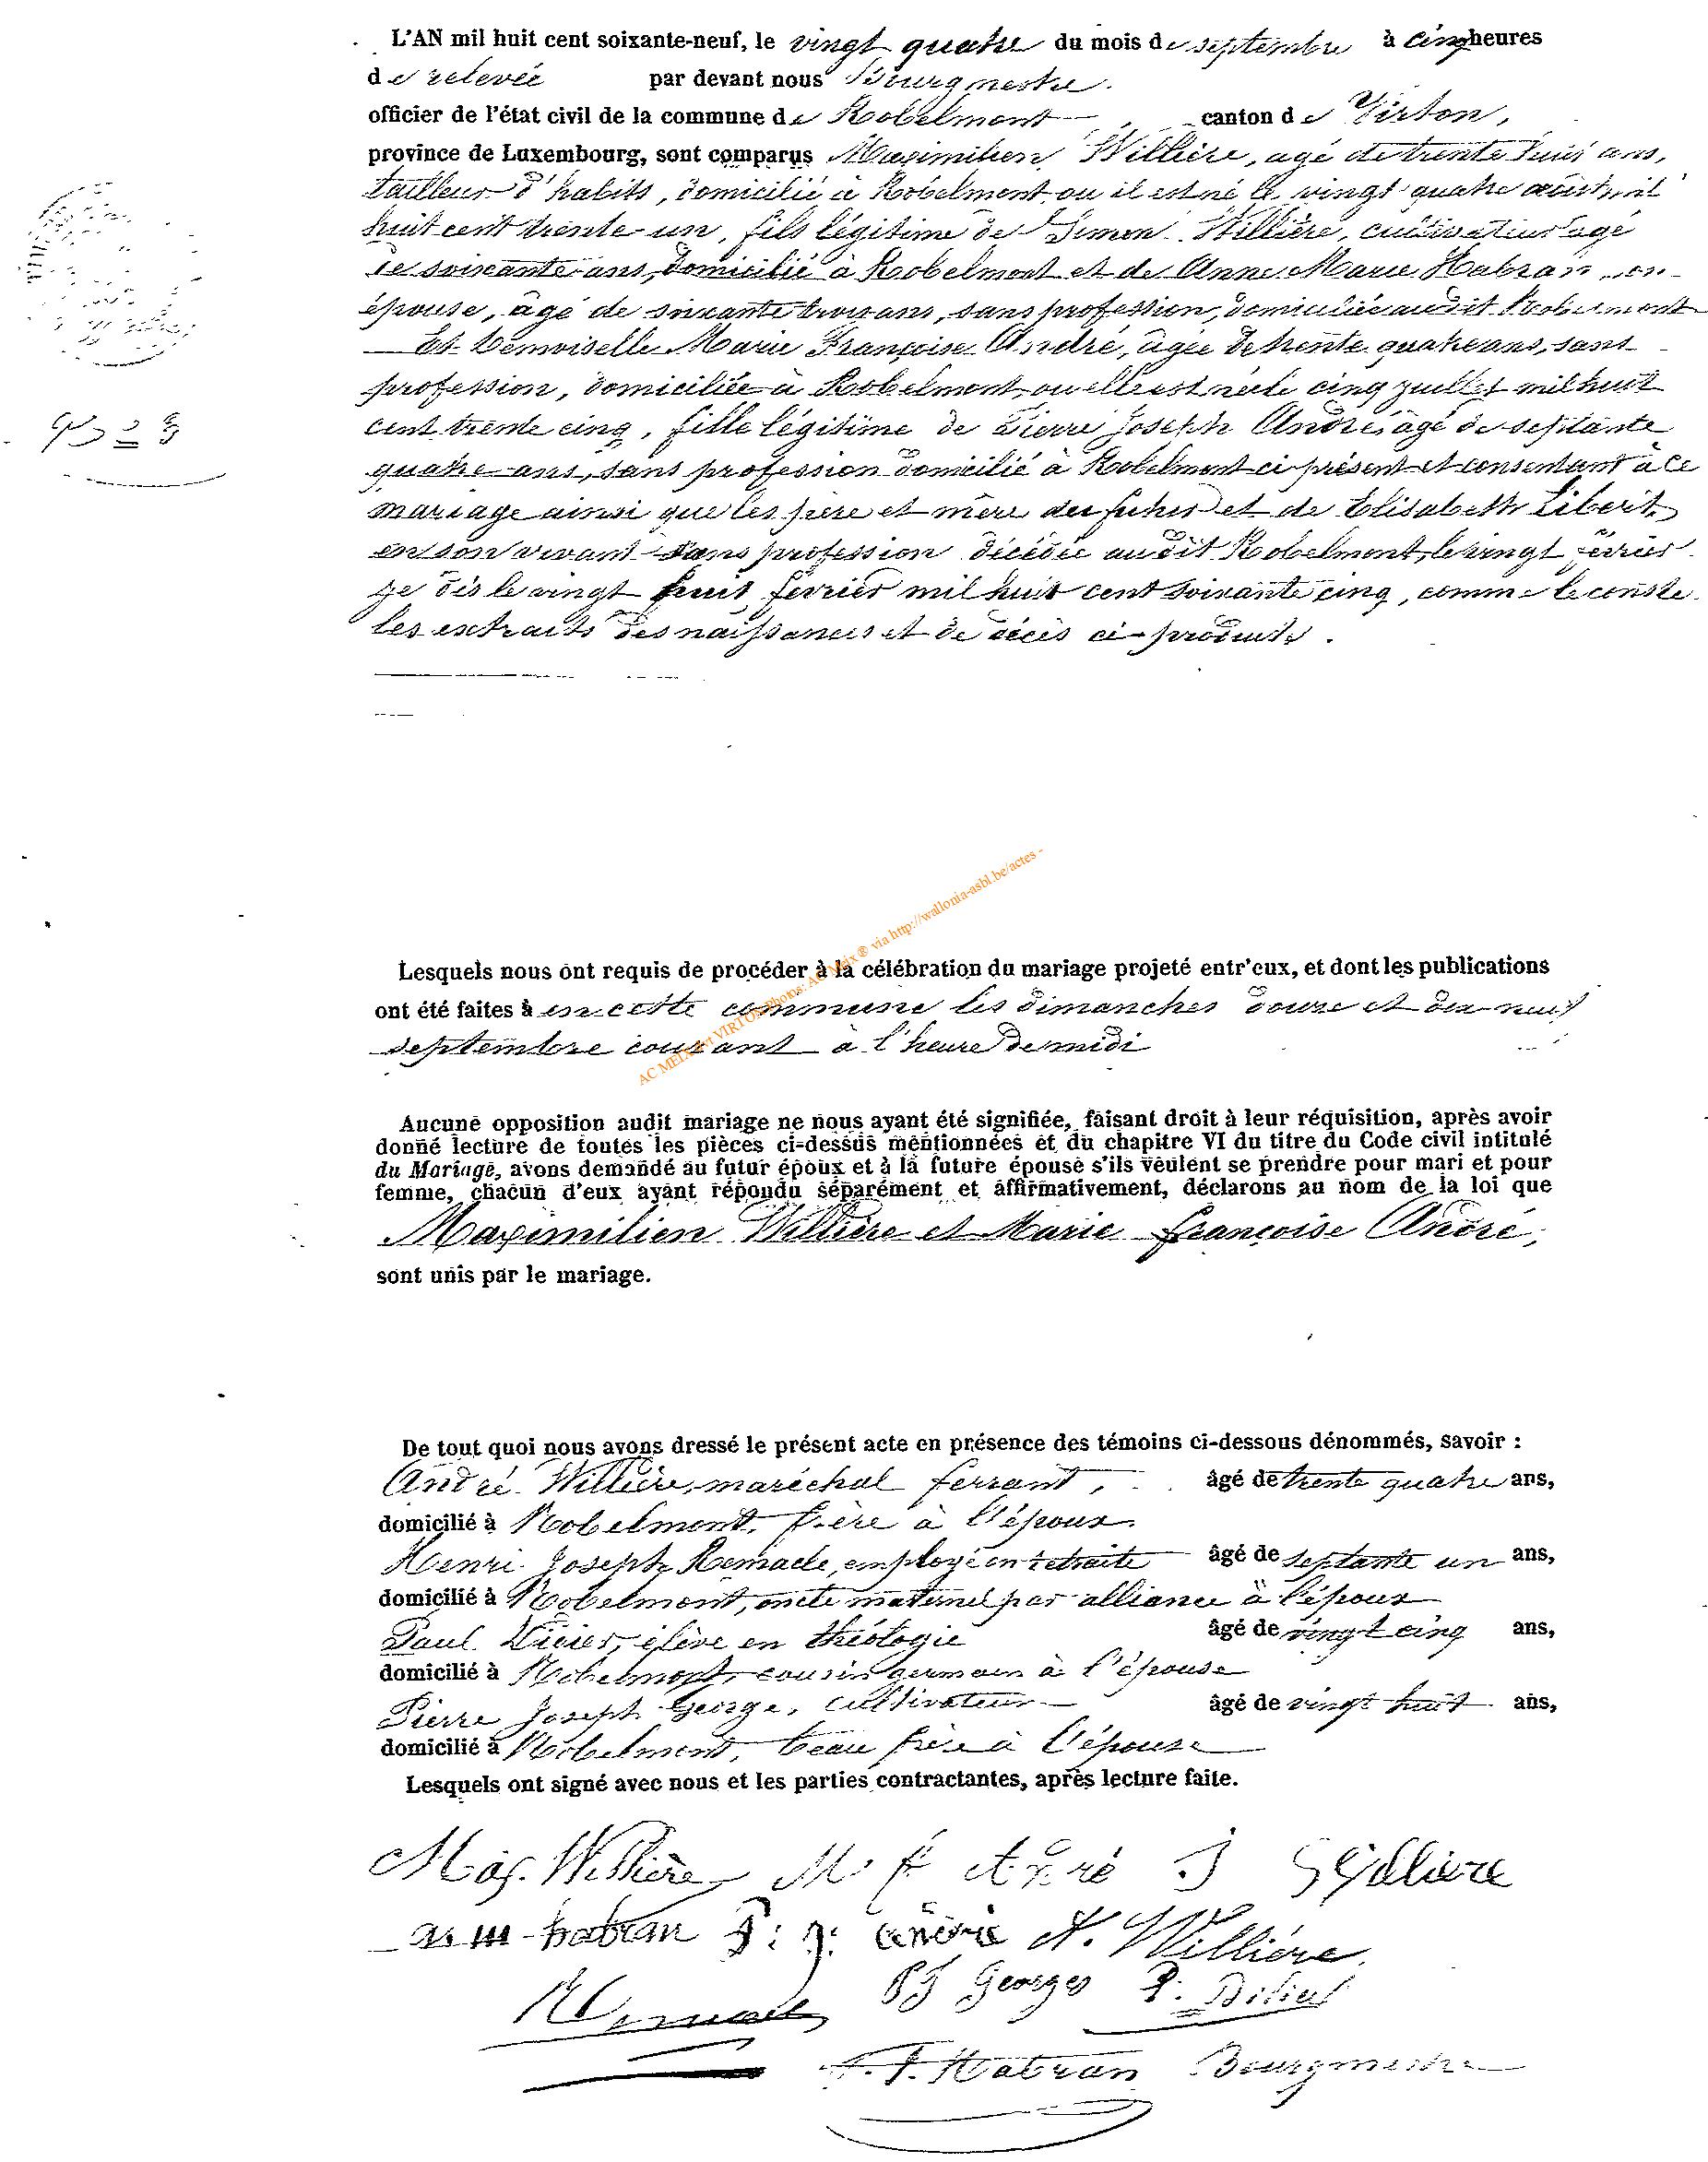 L'AN mil huit cent soixante-neuf, le vingt quatre du mois de septembre à cinq heures
de relevée par devant nous Bourgmestre.
officier de l'état civil de la commune de Robelmont canton de Virton,
province de Luxembourg, sont comparus Maximilien Willière, agé de trente huit ans,
tailleur d'habits, domicilié à Robelmont, ou il est né le vingt quatre aout mil
huit cent trente un, fils légitime de Simon Willière, cultivateur agé
de soixante ans, domicilié à Robelmont et de Anne Marie Habran, son
épouse, âgé de soixante trois ans, sans profession, domiciliée audit Robelmont
Et Demoiselle Marie Françoise André, agée de trente quatre ans, sans
profession, domiciliée à Robelmont, ou elle est née le cinq juillet mil huit
cent trente cinq, fille légitime de Pierre Joseph André, agé de septante
quatre ans, sans profession domicilié à Robelmont ci présent et consentant à ce
mariage ainsi que les père et mère du futur et de Elisabeth Libert,
en son vivant sans profession décédée audit Robelmont, le vingt février
je dis le vingt huit février mil huit cent soixante cinq, comme le conste
les extraits des naissances et de décès ci-produits.
Lesquels nous ont requis de procéder à la célébration du mariage projeté entr'eux, et dont les publications
ont été faites à en cette commune les dimanches douze et dix-neuf
septembre courant à l'heure de midi
AC MEIX et VIRTON Photos: AC Meix ® via http://wallonia-asbl.be/actes -
Aucune opposition audit mariage ne nous ayant été signifiée, faisant droit à leur réquisition, après avoir
donné lecture de toutes les pièces ci-dessus mentionnées et du chapitre VI du titre du Code civil intitulé
du Mariage, avons demandé au futur époux et à la future épouse s'ils veulent se prendre pour mari et pour
femme, chacun d'eux ayant répondu séparément et affirmativement, déclarons au nom de la loi que
Maximilien Willière et Marie Françoise André,
sont unis par le mariage.
De tout quoi nous avons dressé le présent acte en présence des témoins ci-dessous dénommés, savoir :
André Willière, maréchal ferrant, âgé de trente quatre ans,
domicilié à Robelmont, frère à l'époux.
Henri Joseph Remacle, employé en retraite âgé de septante un ans,
domicilié à Robelmont, oncle maternel par alliance à l'époux
Paul Didier, élève en théologie âgé de vingt cinq ans,
domicilié à Robelmont, cousin germain à l'épouse
Pierre Joseph George, cultivateur âgé de vingt huit ans,
domicilié à Robelmont, beau frère à l'épouse
Lesquels ont signé avec nous et les parties contractantes, après lecture faite.
Max. Willière M. f André S Willière
a m habran P: j: andré A. Willière
Remacle PJ Georges P. Didier
Habran Bourgmestre